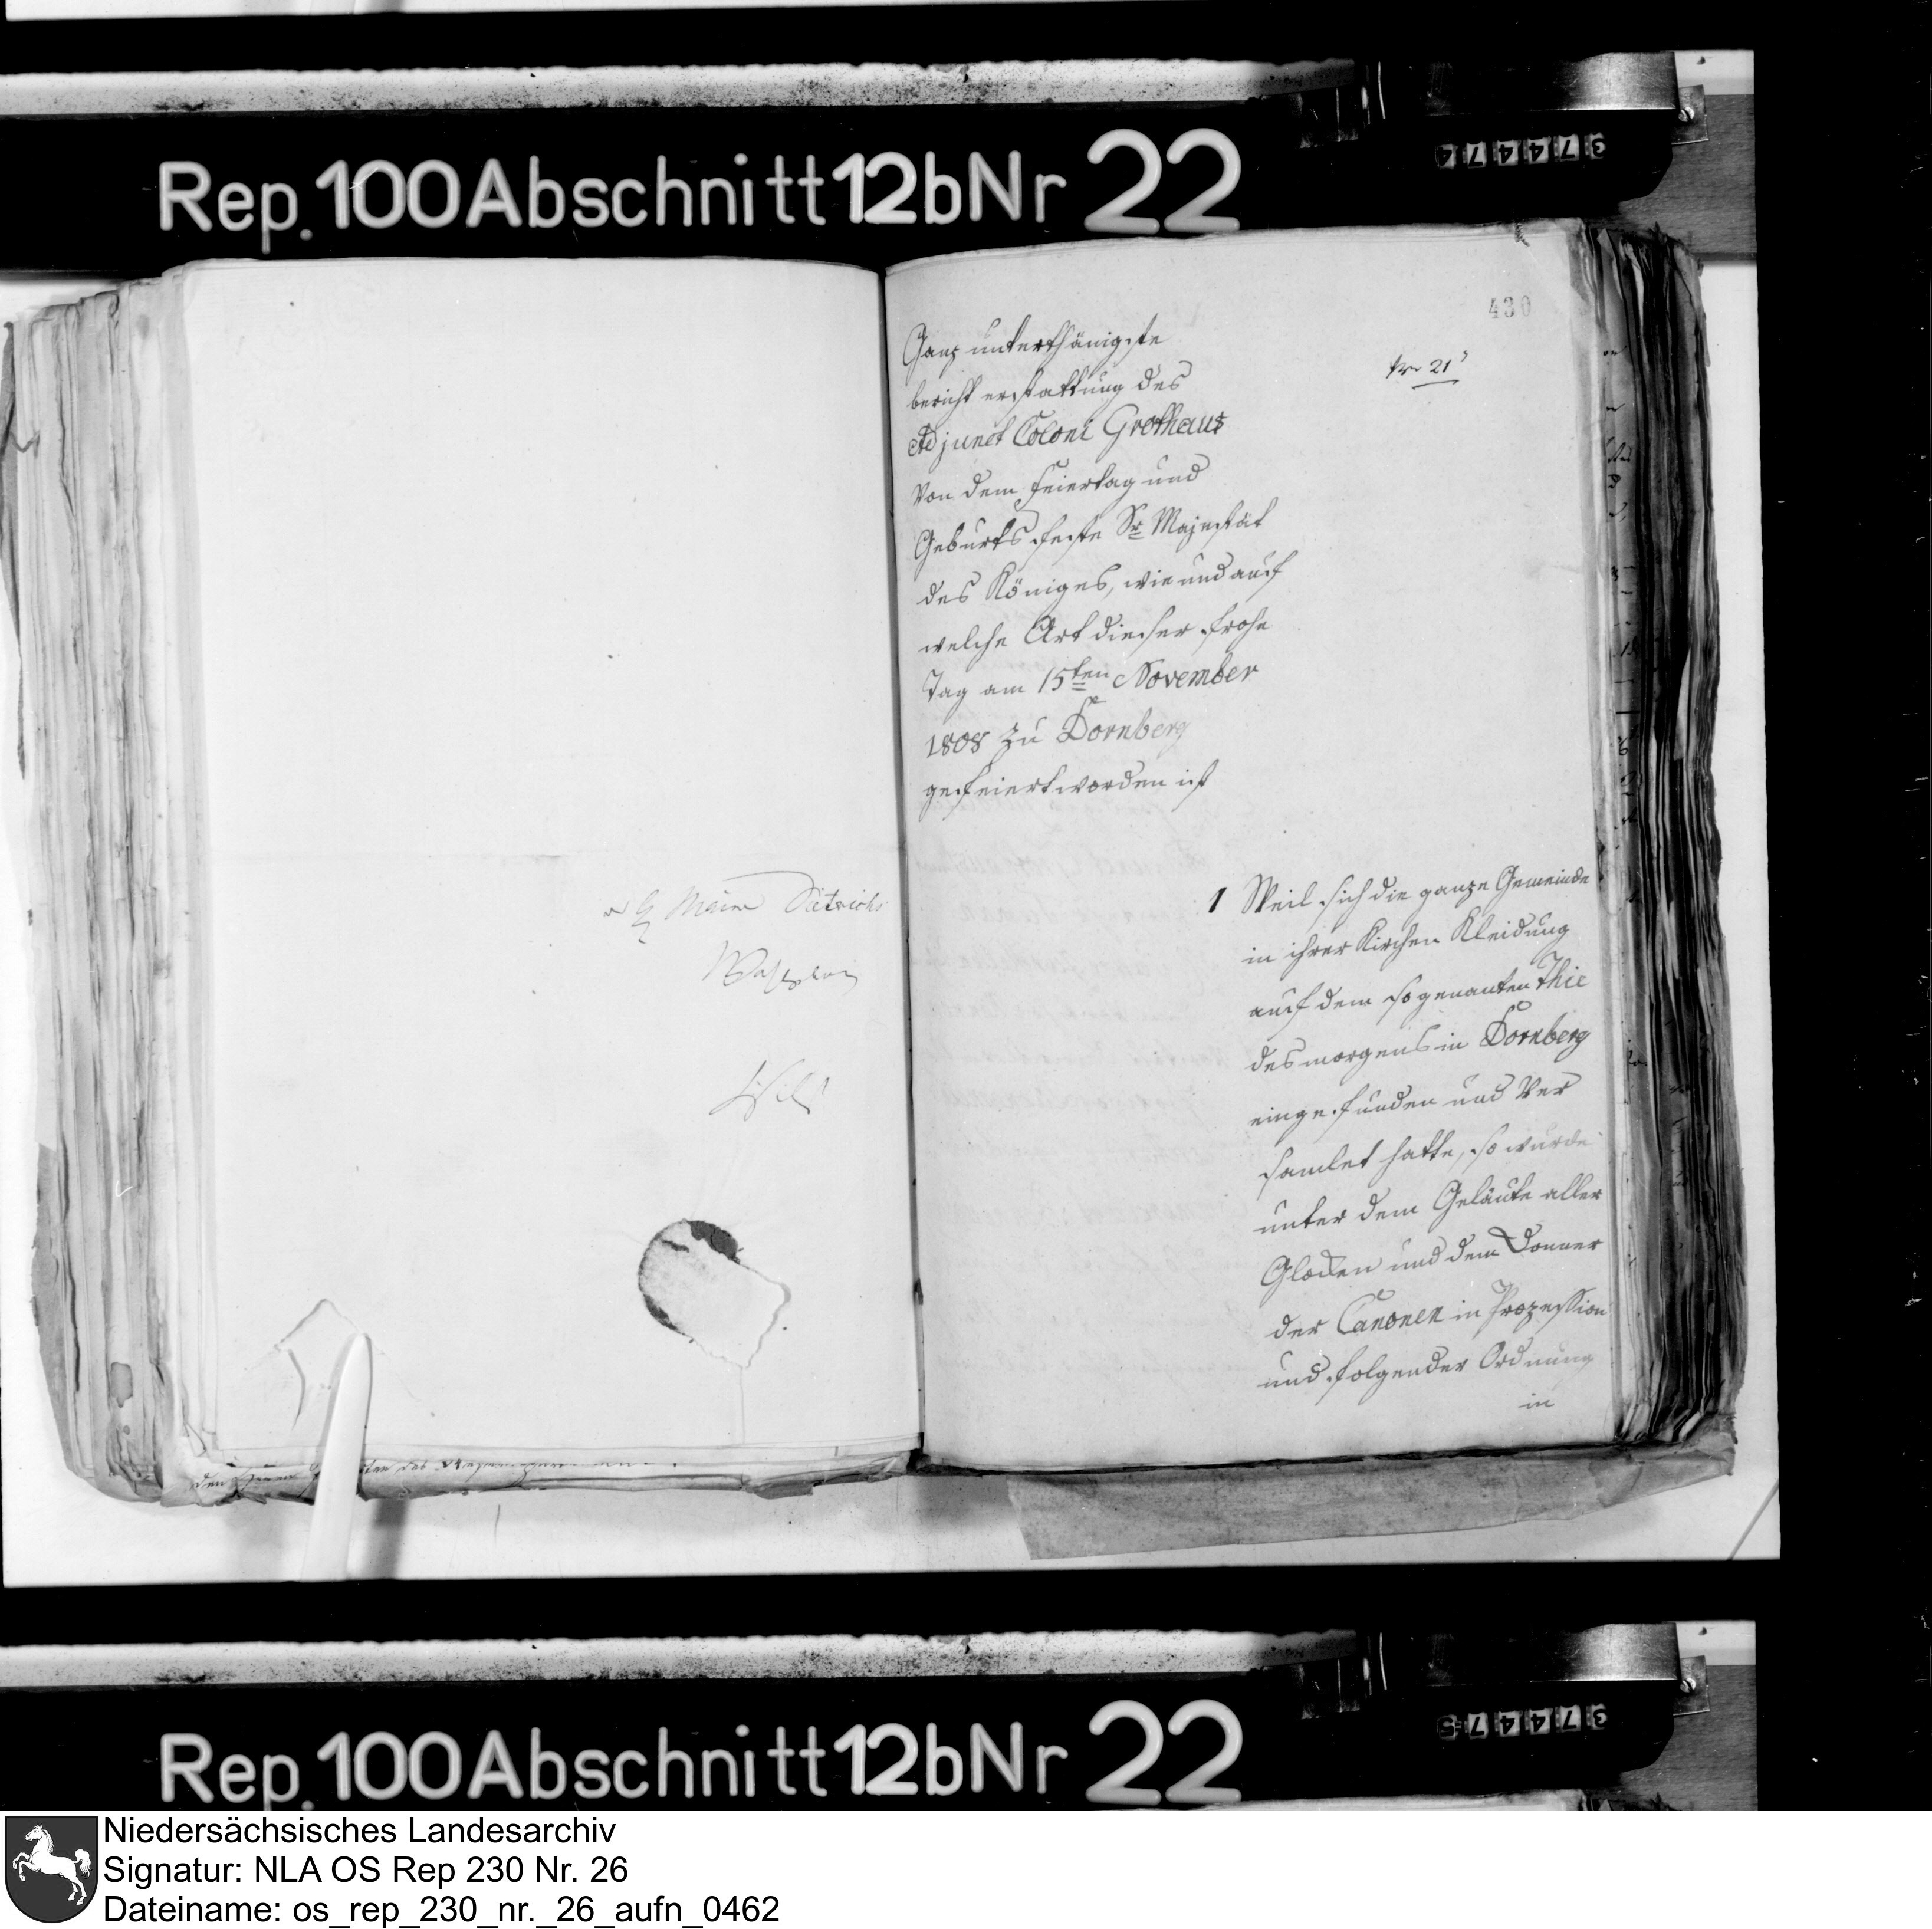 Rep. 100 Abschnitt 12b Nr 22
374474
Maire Dietrichs
430
Ganz unterthänigste
bericht erstattung des
Adjunct Coloni Grothaus
Von dem Feiertag und
Geburts feste Sr Majestät
des Königes, wie und auf
welche Art dieser frohe
Tag am 15ten November
1808 zu Dornberg
gefeiert worden ist
1 Weil sich die ganze Gemeinde
in ihrer Kirchen Kleidung
auf dem so genanten Thie
des morgens in Dornberg
eingefunden und Ver
samlet hatte, so wurde
unter dem Geläute aller
Glocken und dem Donner
der Canonen in Prozession
und folgender Ordnung
in
Rep. 100 Abschnitt 12b Nr 22
374475
Niedersächsisches Landesarchiv
Signatur: NLA OS Rep 230 Nr. 26
Dateiname: os_rep_230_nr._26_aufn_0462